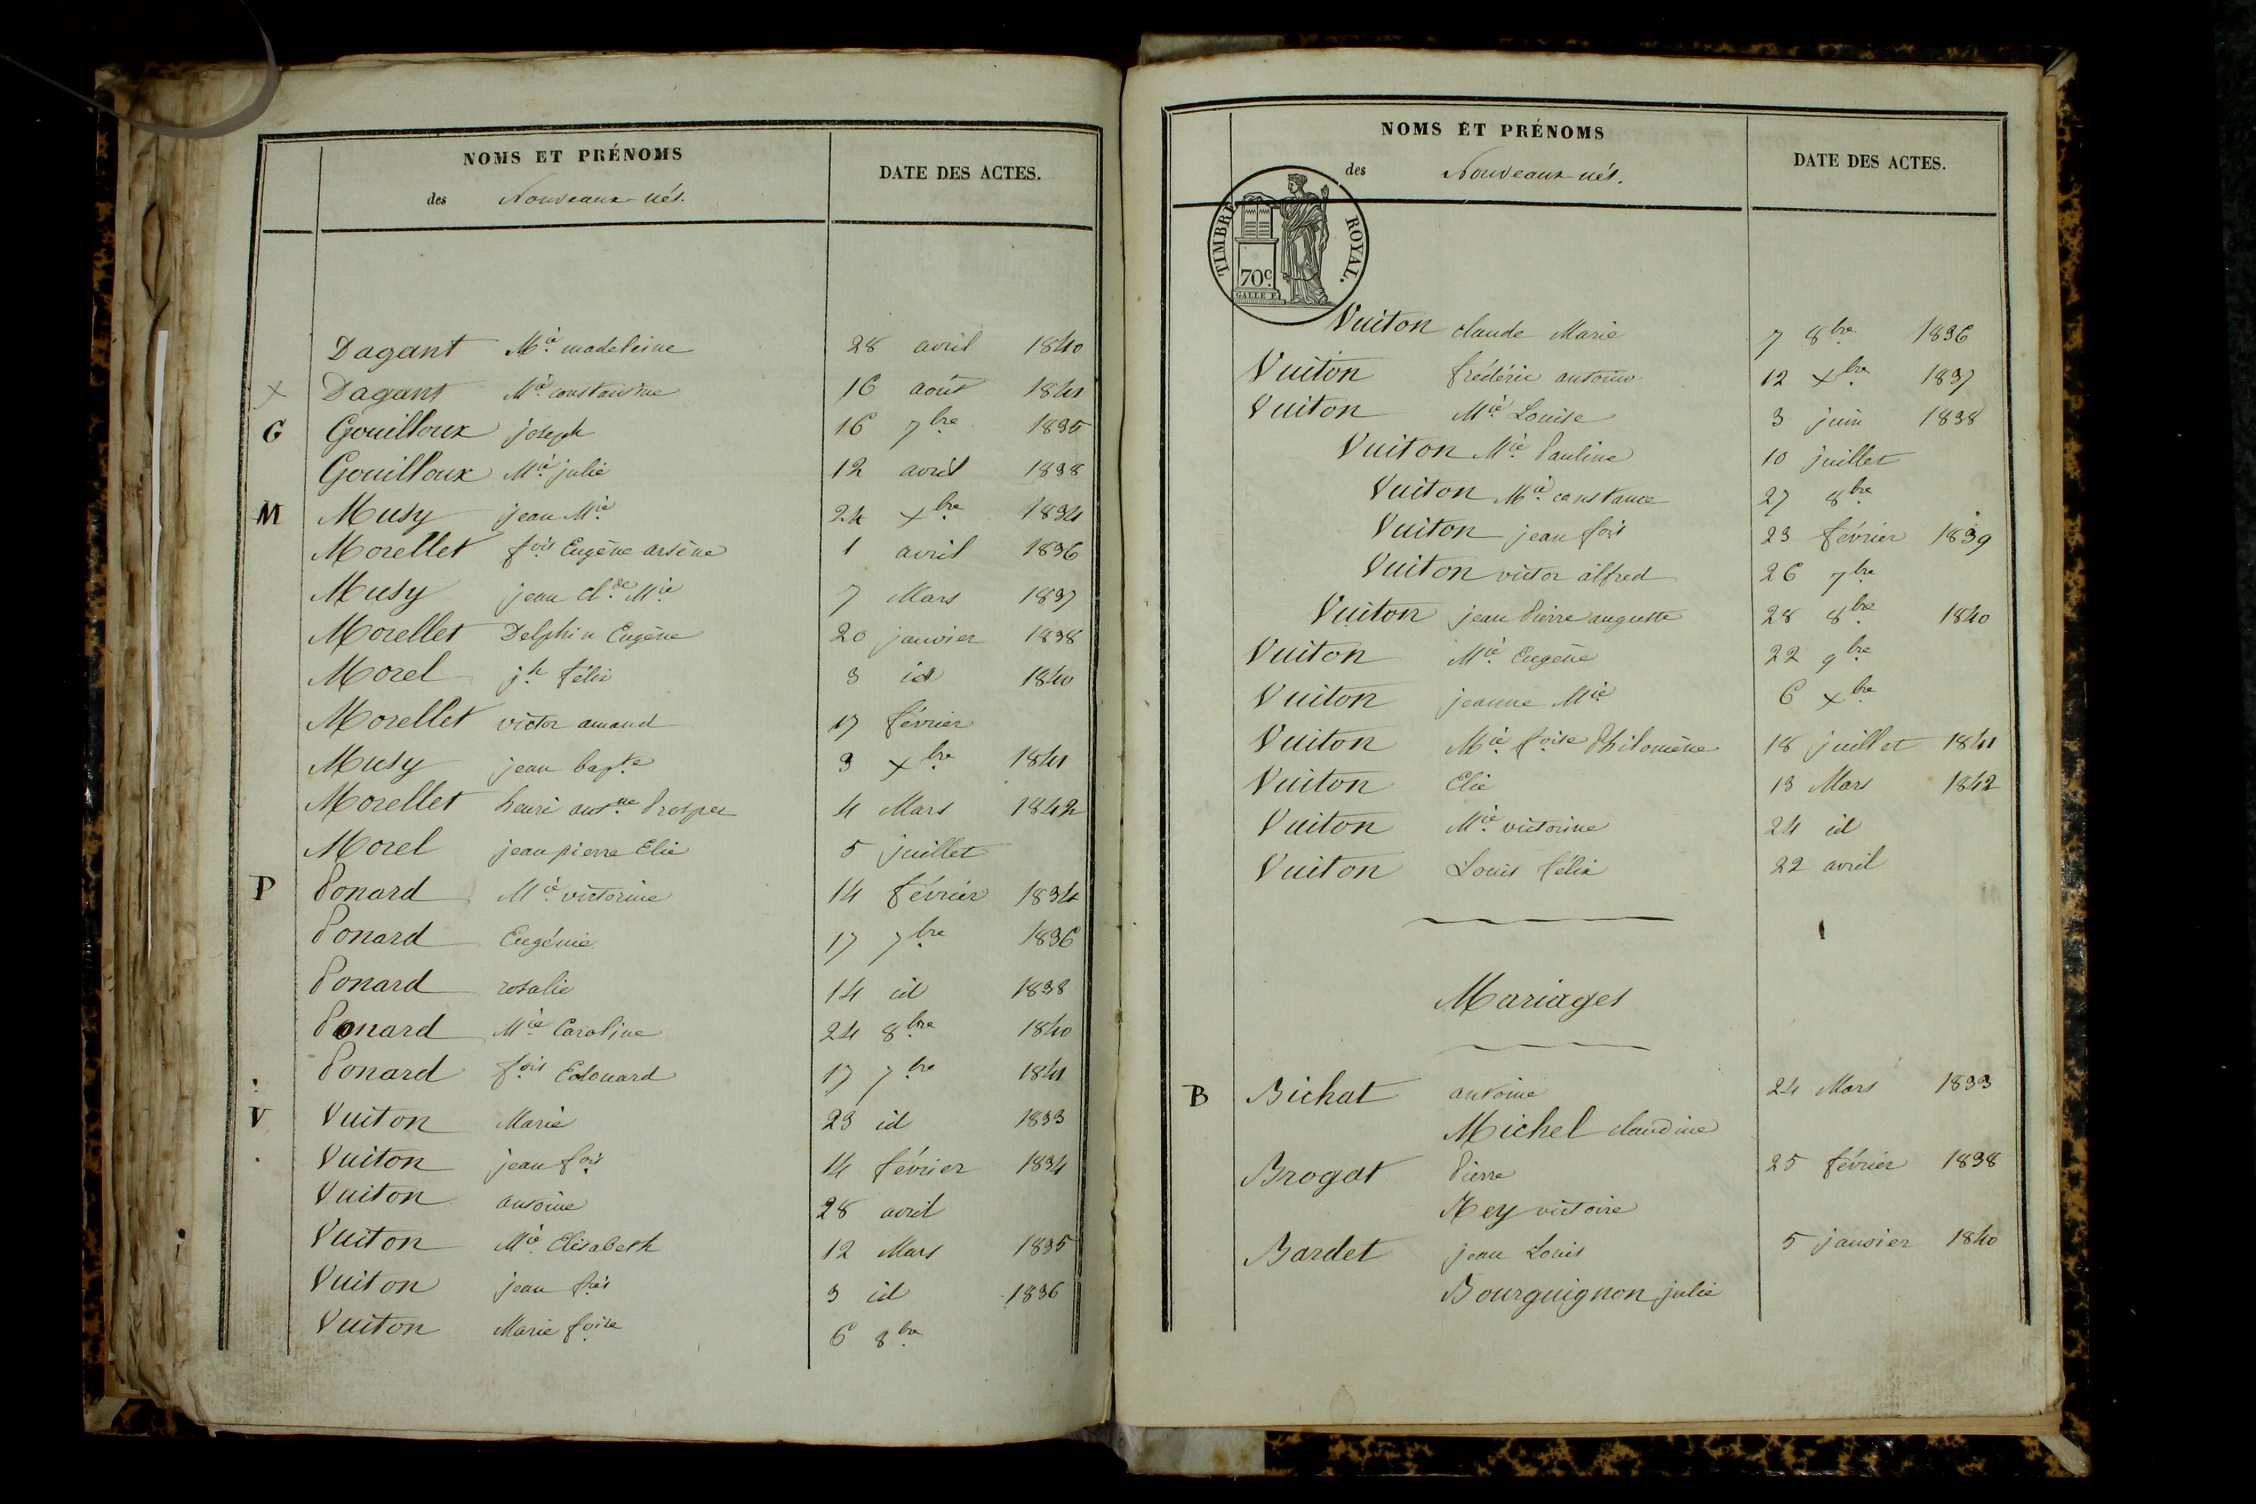 NOMS ET PRÉNOMS
des Nouveaux nés.
DATE DES ACTES.
Dagant Mie madeleine 28 avril 1840
x Dagant Mie constantine 16 août 1841
G Gouilloux joseph 16 7bre 1835
Gouilloux Mie julie 12 avril 1838
M Musy jean Mie 24 xbre 1834
Morellet fois Eugène arsène 1 avril 1836
Musy jean Cl.de Mie 7 Mars 1837
Morellet Delphin Eugène 20 janvier 1838
Morel jh félix 3 id 1840
Morellet victor amand 17 février
Musy jean bapte 3 xbre 1841
Morellet henri antne Prosper 4 Mars 1842
Morel jean pierre Elie 5 juillet
P Ponard Mie victorine 14 février 1834
Ponard Eugénie 17 7bre 1836
Ponard rosalie 14 id 1838
Ponard Mie Caroline 24 8bre 1840
Ponard fois Edouard 17 7bre 1841
V Vuiton Marie 23 id 1833
Vuiton jean fois 14 février 1834
Vuiton antoine 28 avril
Vuiton Mie Elisabeth 12 Mars 1835
Vuiton jean fois 3 id 1836
Vuiton Marie foise 6 8bre
NOMS ET PRÉNOMS
des Nouveaux nés.
DATE DES ACTES.
TIMBRE ROYAL.
70c.
GALLE F.
Vuiton claude Marie 7 8bre 1836
Vuiton frédéric antoine 12 xbre 1837
Vuiton Mie Louise 3 juin 1838
Vuiton Mie Pauline 10 juillet
Vuiton Mie constance 27 8bre
Vuiton jean fois 23 février 1839
Vuiton victor alfred 26 7bre
Vuiton jean Pierre auguste 28 8bre 1840
Vuiton Mie Eugénie 22 9bre
Vuiton jeanne Mie 6 xbre
Vuiton Mie foise Philomène 18 juillet 1841
Vuiton Elie 13 Mars 1842
Vuiton Mie victorine 24 id
Vuiton Louis félix 22 avril
Mariages
B Bichat antoine 24 Mars 1833
Michel claudine
Brogat Pierre 25 février 1838
Rey victoire
Bardet jean Louis 5 janvier 1840
Bourguignon julie